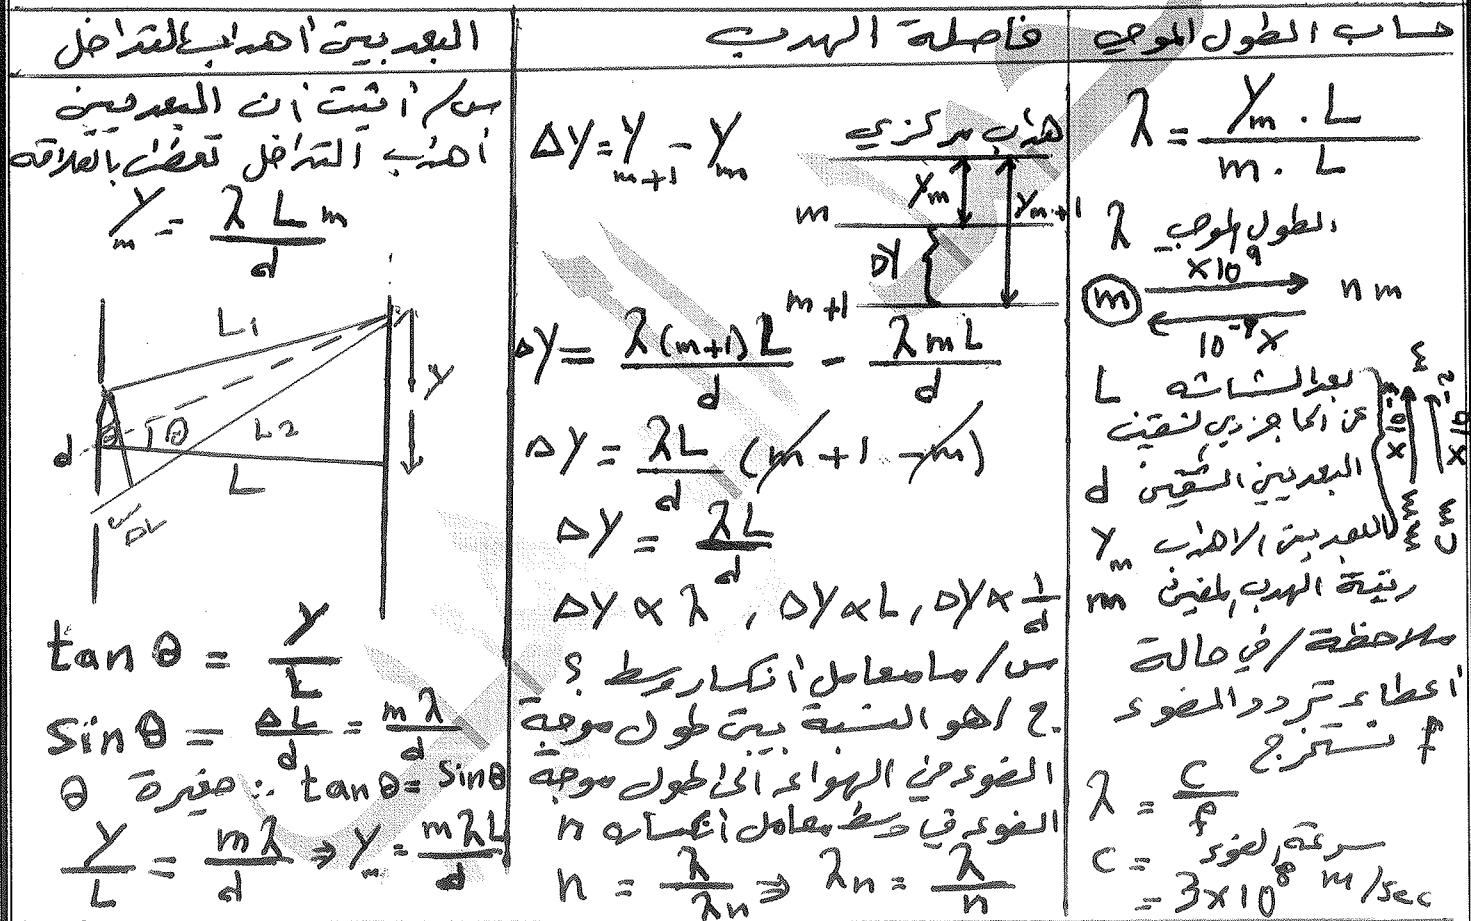 حساب الطول الموجي
λ = Ym . L / m . L
λ الطول الموجي
m ×10⁹ nm
10⁻⁹×
L بعد الشاشه
عن الحاجز ذي الشقين
d البعد بين الشقين
Ym البعد بين الاهداب
m رتبة الهدب المضيئ
ملاحظة / في حالة
اعطاء تردد الضوء
f نستخرج
λ = C / f
C = سرعة الضوء
= 3×10⁸ m/sec
فاصلة الهدب
هداب مركزي
ΔY = Ym+1 - Ym
Ym
Ym+1
m
ΔY
m+1
ΔY = λ(m+1)L / d - λmL / d
ΔY = λL / d (m + 1 - m)
ΔY = λL / d
ΔY ∝ λ , ΔY ∝ L , ΔY ∝ 1/d
س/ ما معامل انكسار وسط ؟
ج/ هو النسبة بين طول موجة
الضوء في الهواء الى طول موجة
الضوء في وسط معامل انكساره n
n = λ / λn ⇒ λn = λ / n
البعد بين اهداب التداخل
س/ اثبت ان البعد بين
اهداب التداخل تعطى بالعلاقه
Ym = λ L m / d
L1
Y
θ
θ
L2
d
L
ΔL
tan θ = Y / L
Sin θ = ΔL / d = mλ / d
θ صغيرة ∴ tan θ = Sin θ
Y / L = mλ / d ⇒ Ym = mλL / d